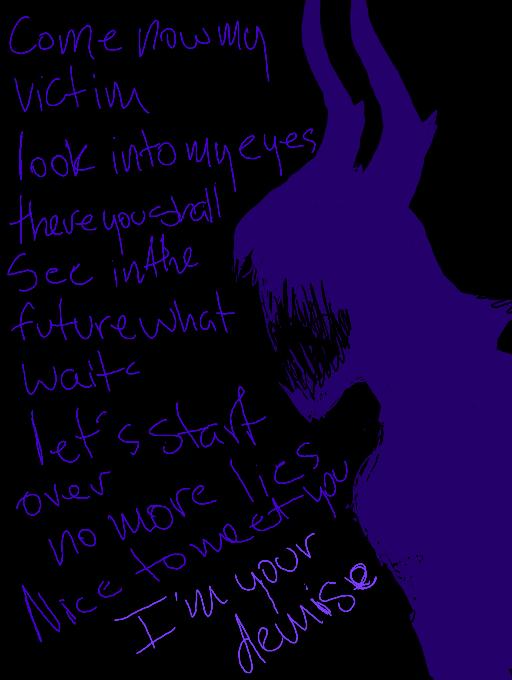 Come now my
victim
look into my eyes
there you shall
See in the
future what
waits
let's start
over
no more lies
Nice to meet you
I'm your
demise